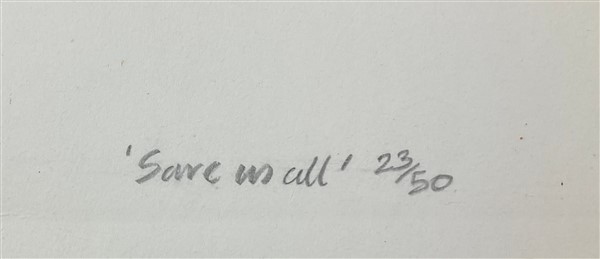 'Save us all' 23/50